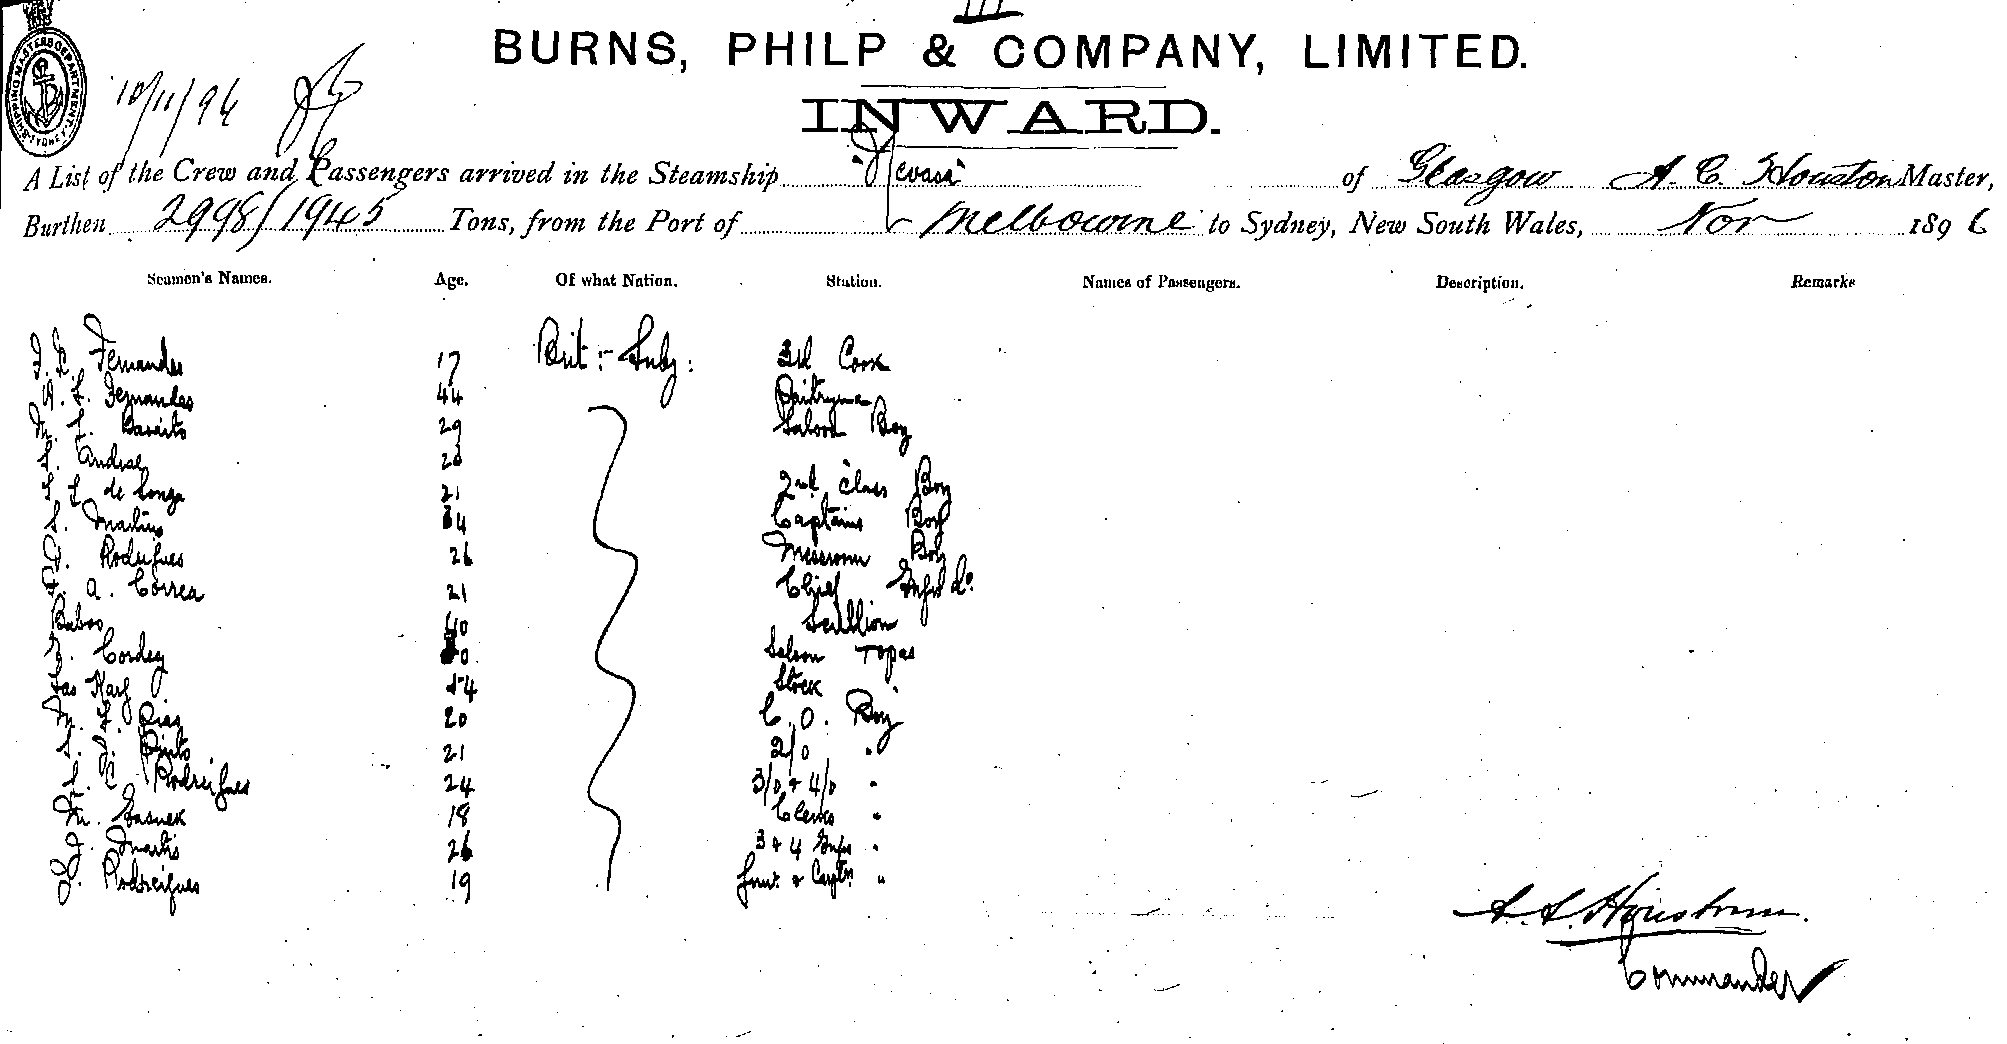 III
BURNS, PHILP & COMPANY, LIMITED.
INWARD.
SHIPPING MASTERS DEPARTMENT. SYDNEY
10/11/96
A List of the Crew and Passengers arrived in the Steamship "Jevasa" of Glasgow A. C. Houston Master,
Burthen 2998/1945 Tons, from the Port of Melbourne to Sydney, New South Wales, Nov 1896
Seamen's Names. Age. Of what Nation. Station. Names of Passengers. Description. Remarks
Fernandes 17 Brit:- Subj: 3rd Cook
Fernandes 44 Pantryman
Barreto 29 Saloon Boy
S. Andrae
de Souza 21 2nd Class Boy
S. Martins 34 Captains Boy
Rodrigues 26 Messroom Boy
A. Correa 21 Chief Engrs do.
Baboo 40 Scullion
Cordey Saloon Topas
54 Stock
Dias 20 C. O. Boy
Pinto 21 2/0 "
C. Rodrigues 24 3/0 & 4/0 "
M. 18 Clerks "
Martis 26 3 & 4 Engrs "
Rodreigues 19 "
Commander